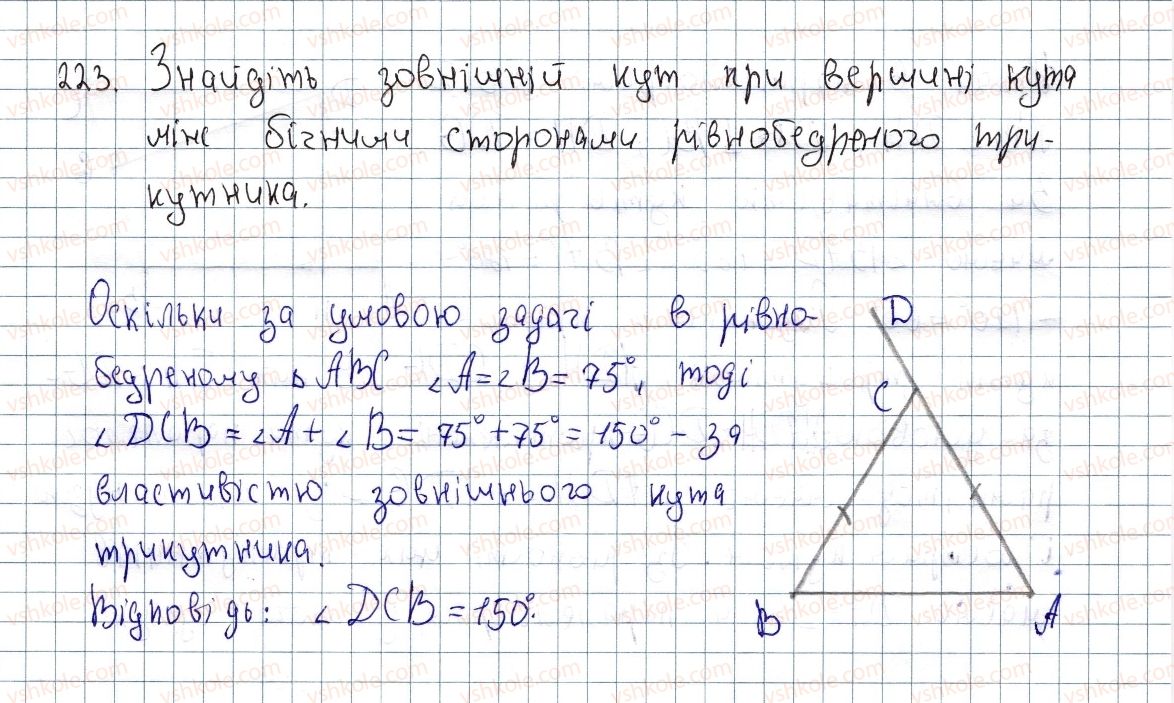 223. Знайдіть зовнішній кут при вершині кута
між бічними сторонами рівнобедреного три-
кутника.
Оскільки за умовою задачі в рівно-
бедреному △ ABC ∠A=∠B=75°, тоді
∠DCB=∠A+∠B=75°+75°=150° - за
властивістю зовнішнього кута
трикутника.
Відповідь: ∠DCB=150°.
D
C
B
A
vshkole.com